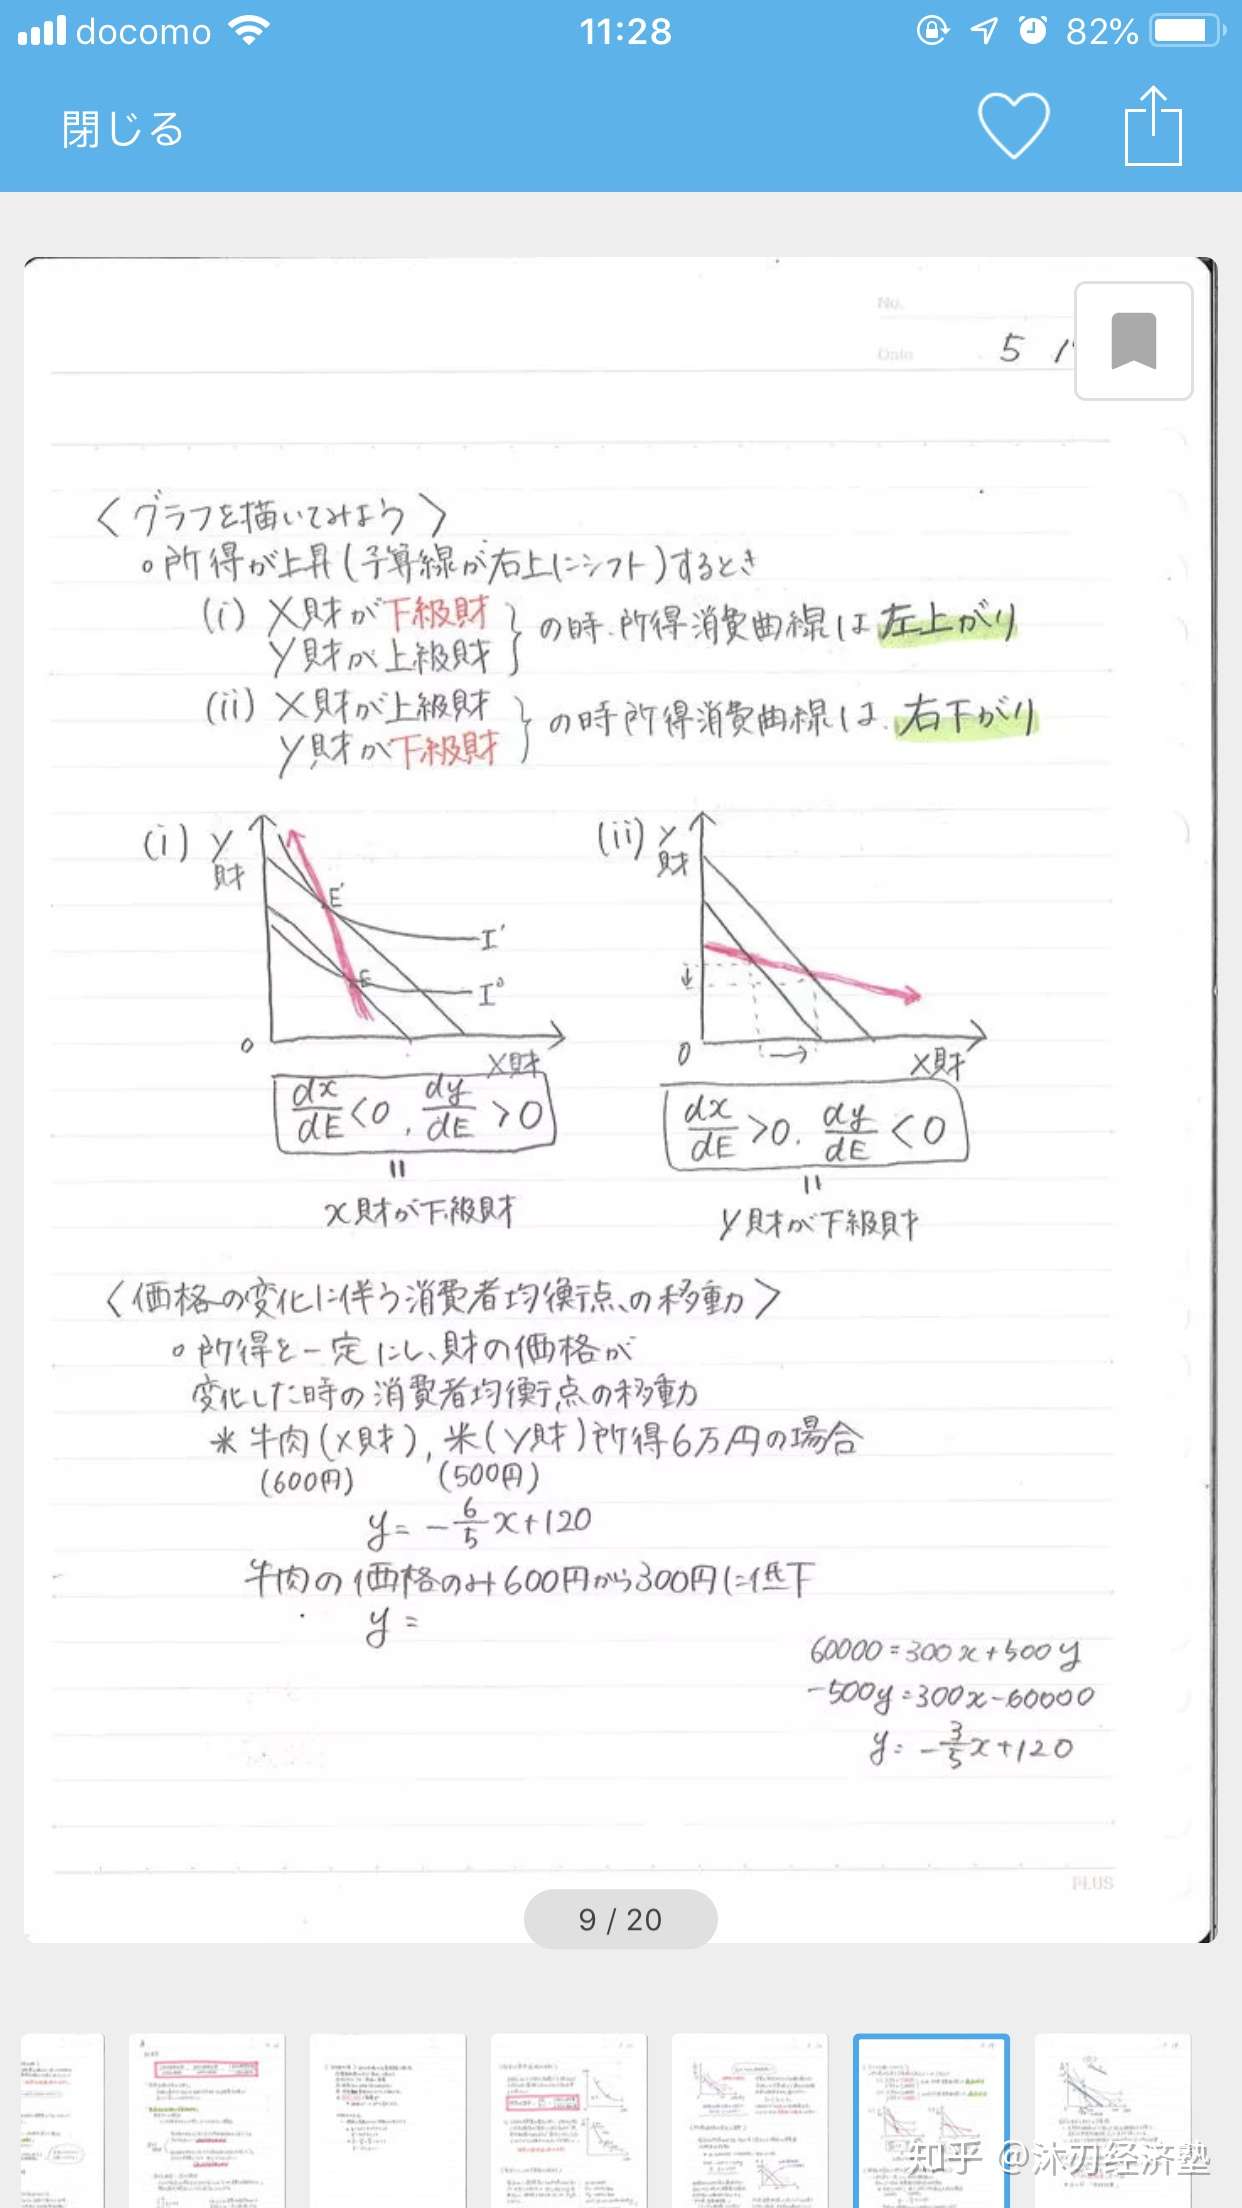 docomo 11:28 82%
閉じる
No.
Date 5
〈グラフを描いてみよう〉
○所得が上昇(予算線が右上にシフト)するとき
(i) X財が下級財
Y財が上級財 } の時、所得消費曲線は 左上がり
(ii) X財が上級財
Y財が下級財 } の時所得消費曲線は、右下がり
(i) y財 E' E I' I⁰ 0 X財
(ii) y財 0 X財
dx/dE<0, dy/dE>0
=
x財が下級財
dx/dE>0, dy/dE<0
=
y財が下級財
〈価格の変化に伴う消費者均衡点の移動〉
○所得を一定にし、財の価格が
変化した時の消費者均衡点の移動
＊牛肉(X財), 米(Y財)所得6万円の場合
(600円) (500円)
y= -6/5x+120
牛肉の価格のみ600円から300円に低下
y=
60000=300x+500y
-500y=300x-60000
y=-3/5x+120
PLUS
9 / 20
知乎 @沐刃经济塾